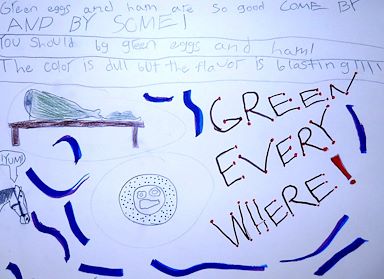 Green eggs and ham are so good COME BY
AND BY SOME!
You should by green eggs and ham!
The color is dull but the flavor is blasting!!!!
GREEN
EVERY
WHERE!
YUM!